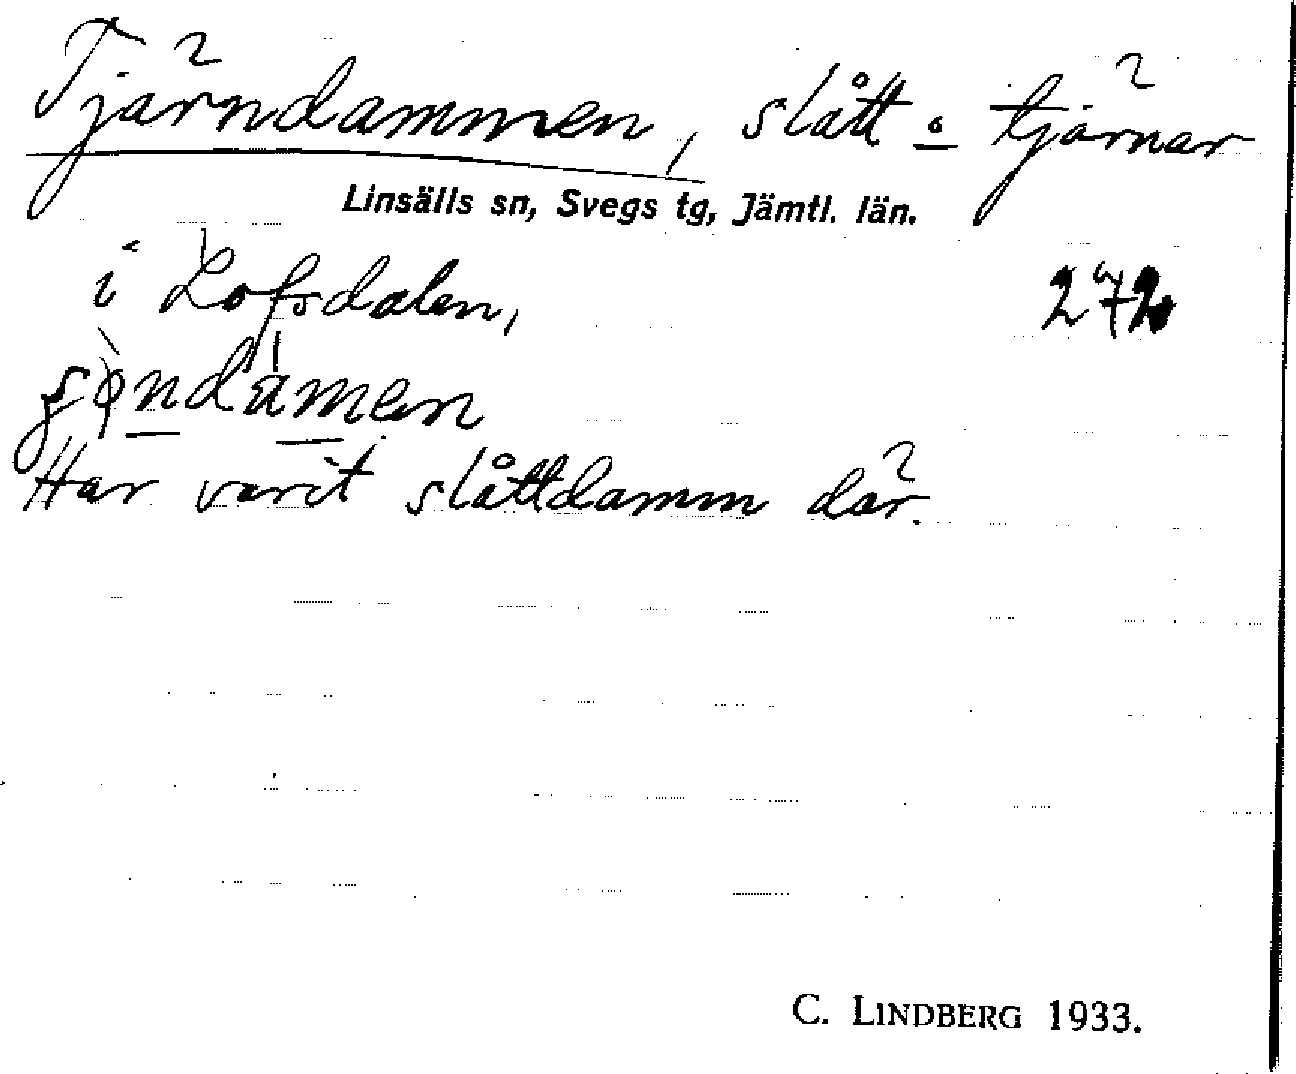 Tjärndammen, slått o tjärnar
Linsälls sn, Svegs tg, Jämtl. län.
i Lofsdalen, 272
Har varit slåttdamm där.
C. LINDBERG 1933.